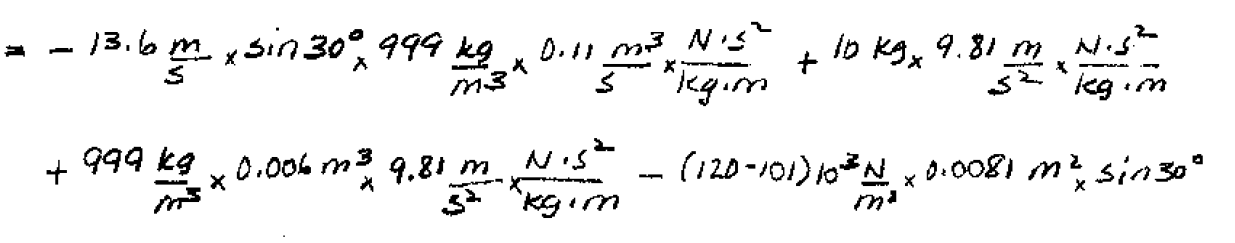 = - 13.6 m/s × sin 30° × 999 kg/m³ × 0.11 m³/s × N·s²/kg·m + 10 kg × 9.81 m/s² × N·s²/kg·m
+ 999 kg/m³ × 0.006 m³ × 9.81 m/s² × N·s²/kg·m - (120-101)10³ N/m² × 0.0081 m² × sin 30°